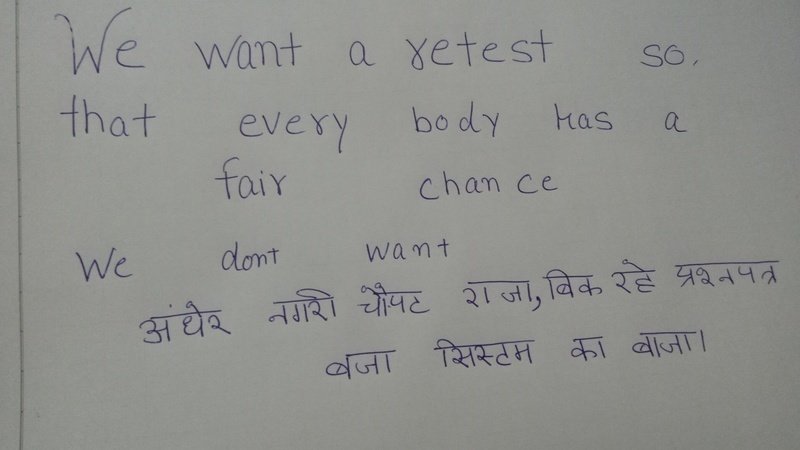 We want a retest so.
that every body has a
fair chance
We dont want
अंधेर नगरी चौपट राजा, बिक रहे प्रश्नपत्र
बजा सिस्टम का बाजा।